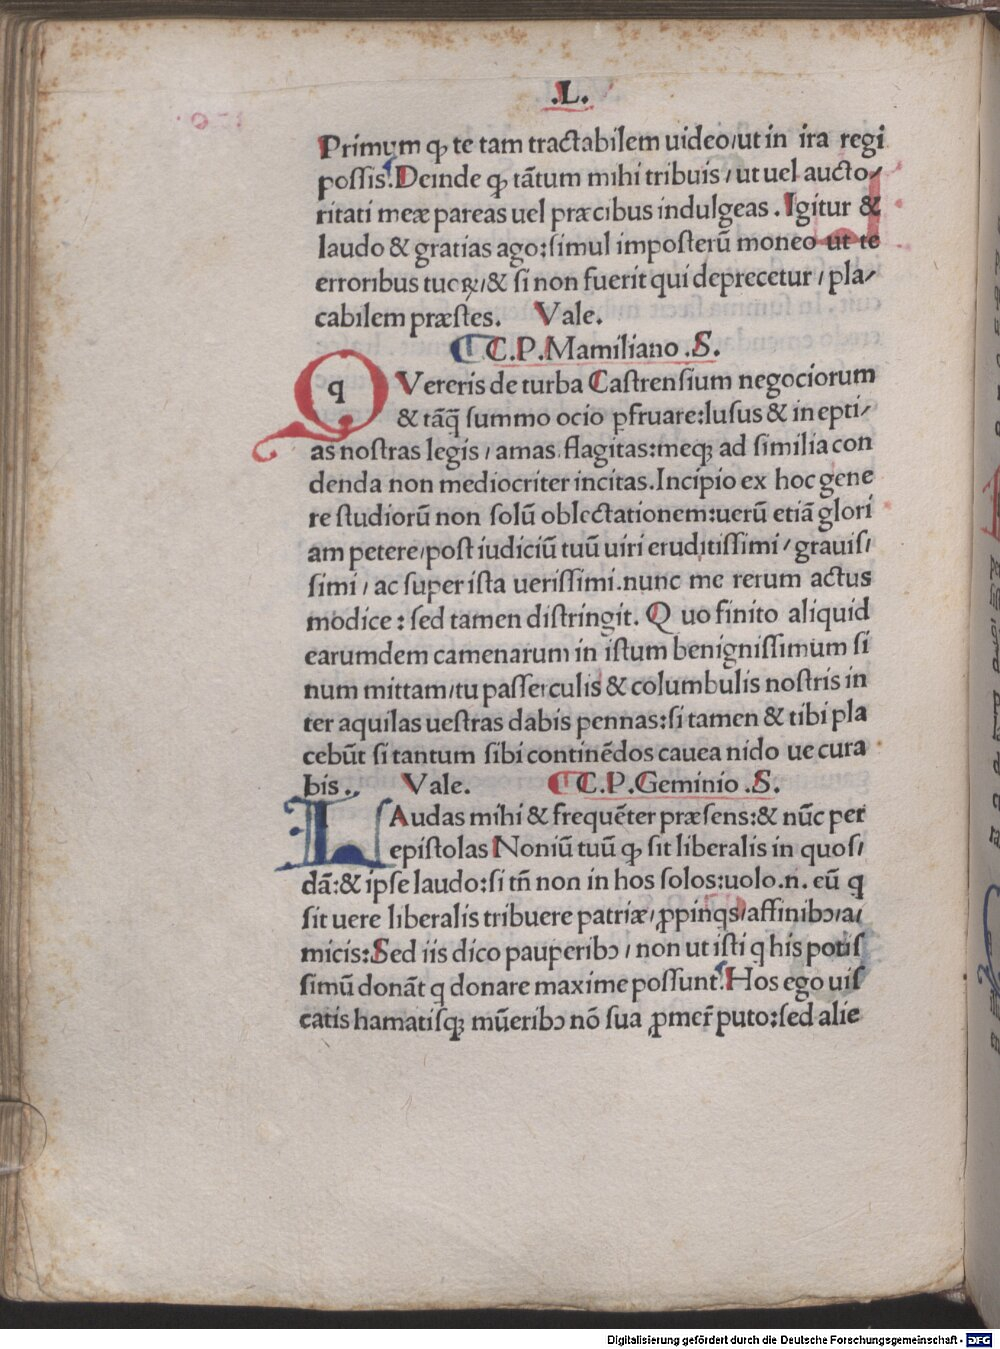 .L.
Primum ꝙ te tam tractabilem uideo/ut in ira regi
possis.Deinde ꝙ tātum mihi tribuis / ut uel aucto/
ritati meæ pareas uel præcibus indulgeas . Igitur &
laudo & gratias ago:simul imposterū moneo ut te
erroribus tuoꝝ/& si non fuerit qui deprecetur / pla/
cabilem præstes. Vale.
C.P.Mamiliano .S.
q Vereris de turba Castrensium negociorum
& tāq̄ summo ocio ꝑfruare:lusus & inepti/
as nostras legis / amas flagitas:meqꝫ ad similia con
denda non mediocriter incitas.Incipio ex hoc gene
re studiorū non solū oblectationem:uerū etiā glori
am petere/post iudiciū tuū uiri eruditissimi / grauis/
simi / ac super ista uerissimi.nunc me rerum actus
modice : sed tamen distringit. Quo finito aliquid
earumdem camenarum in istum benignissimum si
num mittam/tu passerculis & columbulis nostris in
ter aquilas uestras dabis pennas:si tamen & tibi pla
cebūt si tantum sibi continēdos cauea nido ue cura
bis .. Vale. C.P.Geminio .S.
LAudas mihi & frequēter præsens:& nūc per
epistolas Noniū tuū ꝙ sit liberalis in quos/
dā:& ipse laudo:si tn̄ non in hos solos:uolo.n. eū q
sit uere liberalis tribuere patriæ/ ꝓpinqs/affinibꝰ/a/
micis:Sed iis dico pauperibꝰ / non ut isti q his potis
simū donāt q donare maxime possunt.Hos ego uis
catis hamatisqꝫ mūeribꝰ nō sua ꝓmer̄ puto:sed alie
Digitalisierung gefördert durch die Deutsche Forschungsgemeinschaft - DFG